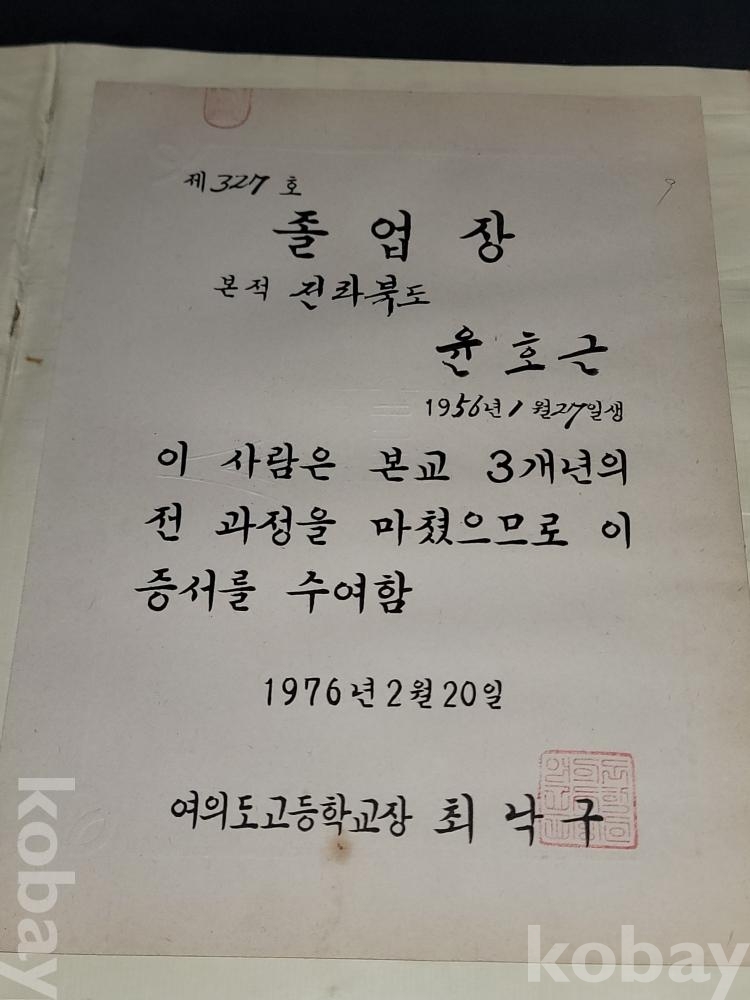 제327호
졸업장
본적 전라북도
윤호근
1956년 1월 27일생
이 사람은 본교 3개년의
전 과정을 마쳤으므로 이
증서를 수여함
1976년 2월 20일
여의도고등학교장 최낙구
kobay
kobay